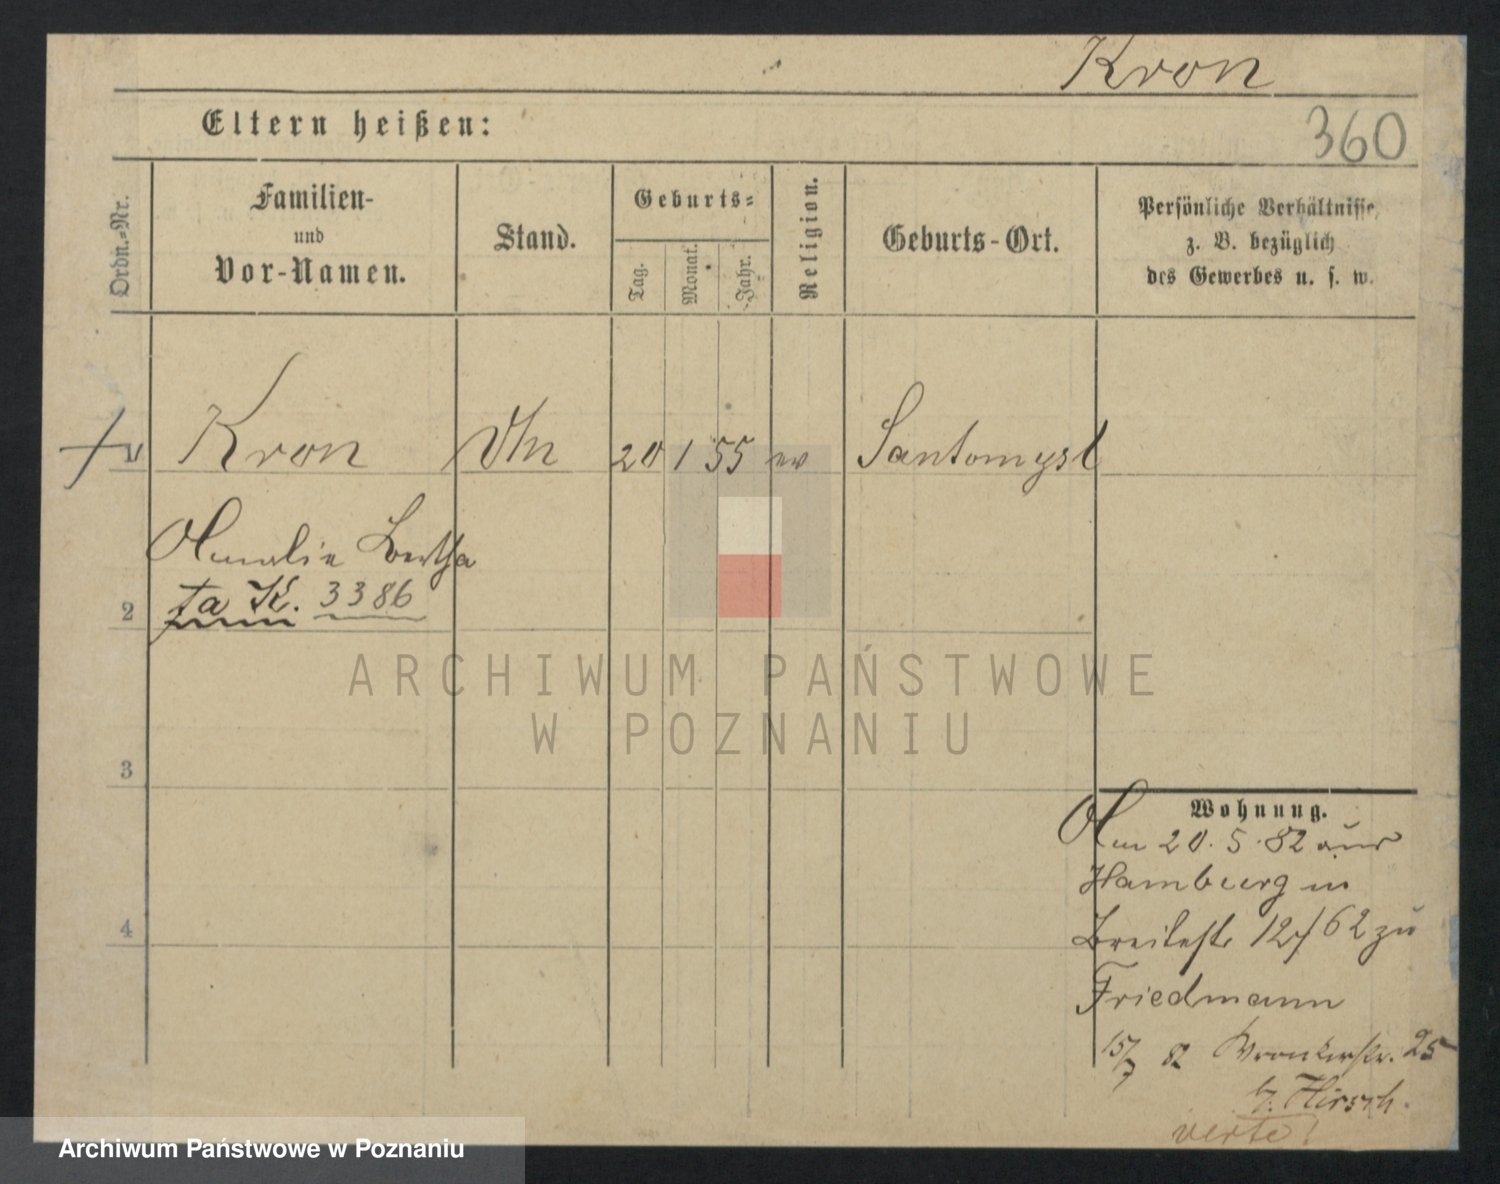 Kron
Eltern heißen:
360
Ordn.-Nr.
Familien-
und
Vor-Namen.
Stand.
Geburts-
Tag.
Monat.
Jahr.
Religion.
Geburts-Ort.
Persönliche Verhältnisse,
z. B. bezüglich
des Gewerbes u. s. w.
1
Kron
20 1 55
Santomysl
Amalie Bertha
2
K. 3386
3
4
Wohnung.
Am 20. 5. 82 aus
Hamburg in
Breitestr 12/62 zu
Friedmann
15/7 82 Wronkerstr. 25
b/. Hirsch.
verte!
ARCHIWUM PAŃSTWOWE
W POZNANIU
Archiwum Państwowe w Poznaniu